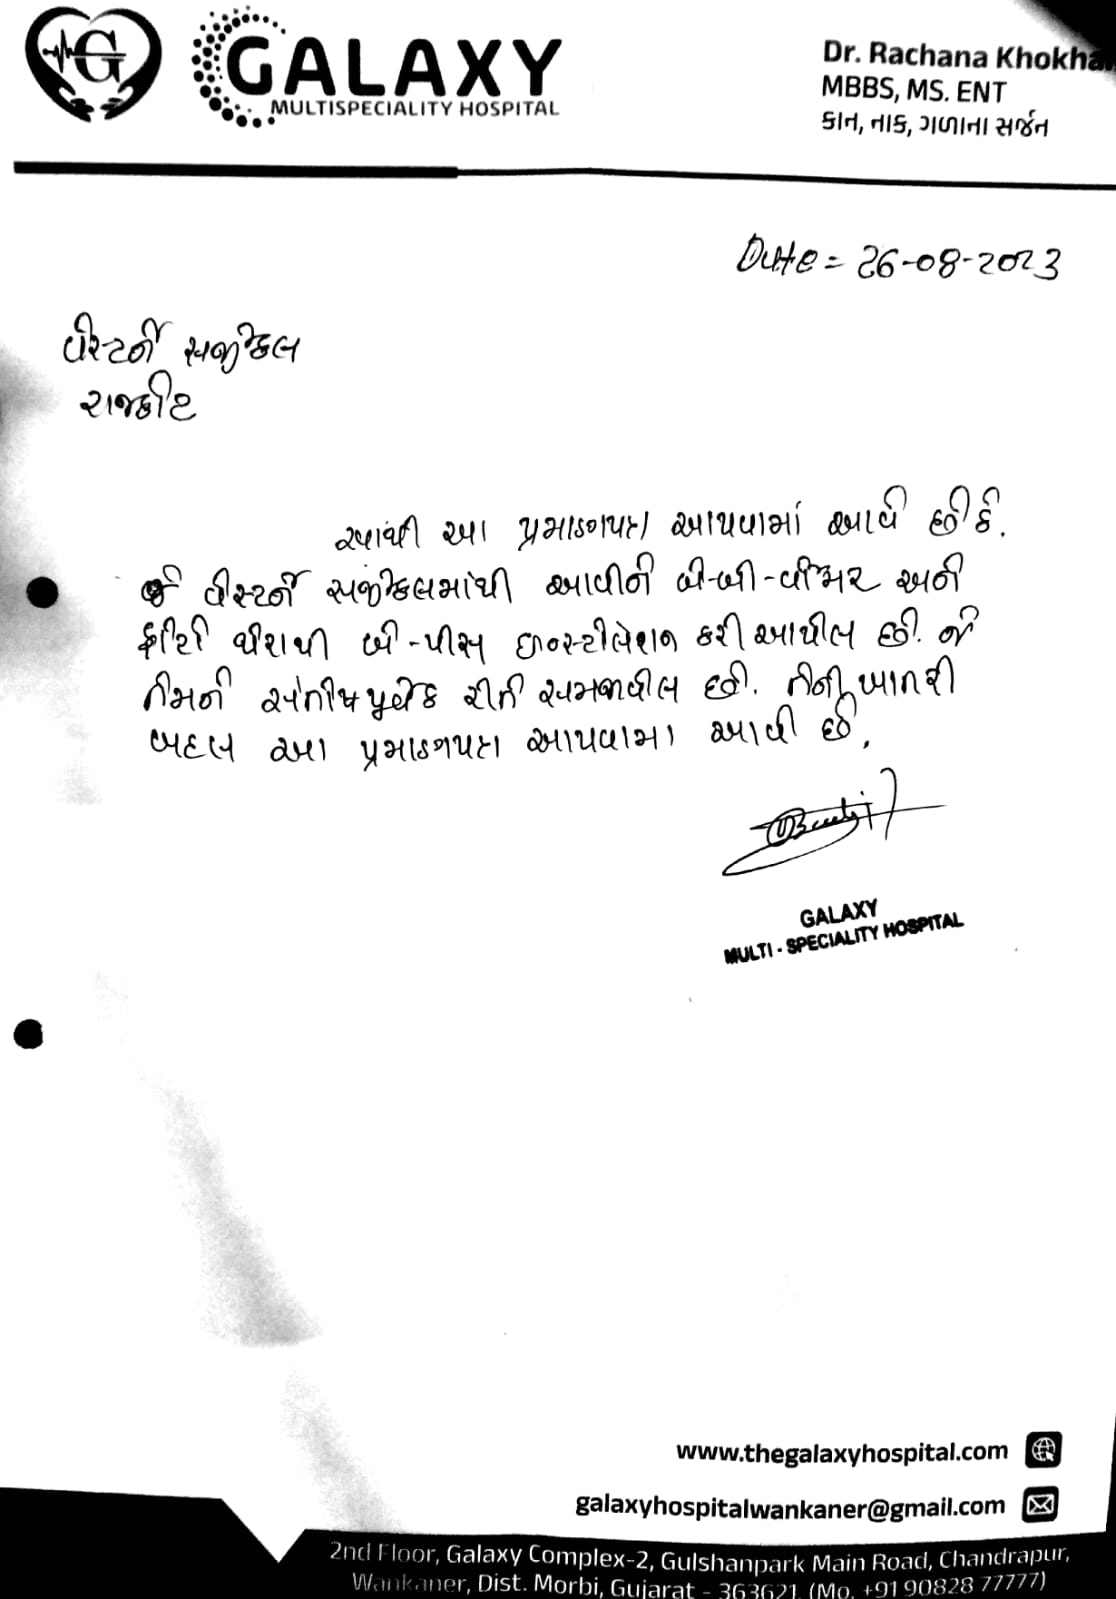 G
GALAXY
MULTISPECIALITY HOSPITAL
Dr. Rachana Khokha
MBBS, MS. ENT
કાન, નાક, ગળાના સર્જન
Date = 26-08-2023
વેસ્ટર્ન સર્જીકલ
રાજકોટ
આથી આ પ્રમાણપત્ર આપવામાં આવે છે કે.
જે વેસ્ટર્ન સર્જીકલમાંથી આવીને બે-બી-વોર્મર અને
ફોટો થેરાપી બે-પીસ ઇન્સ્ટોલેશન કરી આપેલ છે. જે
તેમને સંતોષપૂર્વક રીતે સમજાવેલ છે. તેની ખાતરી
બદલ આ પ્રમાણપત્ર આપવામા આવે છે.
GALAXY
MULTI - SPECIALITY HOSPITAL
www.thegalaxyhospital.com
galaxyhospitalwankaner@gmail.com
2nd Floor, Galaxy Complex-2, Gulshanpark Main Road, Chandrapur,
Wankaner, Dist. Morbi, Gujarat - 363621. (Mo. +91 90828 77777)